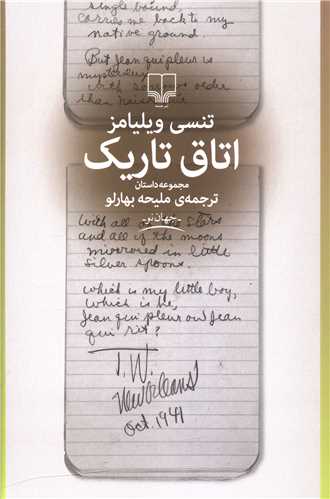 single bound,
carries me back to my
native ground.
But Jean qui pleur is
تنسی ویلیامز
اتاق تاریک
مجموعه داستان
ترجمه‌ی ملیحه بهارلو
-جهان‌نو-
with all
and all of the moons
mirrored in little
silver spoons.
which is my little boy,
which is he,
Jean qui pleur ou Jean
qui rit?
T. W.
New Orleans
Oct. 1941